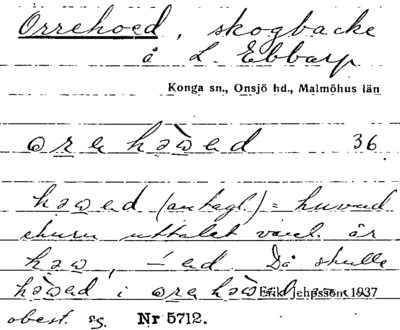 Orrehoed, skogbacke
å L. Ebbarp
Konga sn., Onsjö hd., Malmöhus län
ore hə̀wed 36
həwed (antagl.) = huvud
uttalet är
həw, -ed. Då skulle
hə̀wed i ore
Erik Jeppsson 1937
obest. sg. Nr 5712.